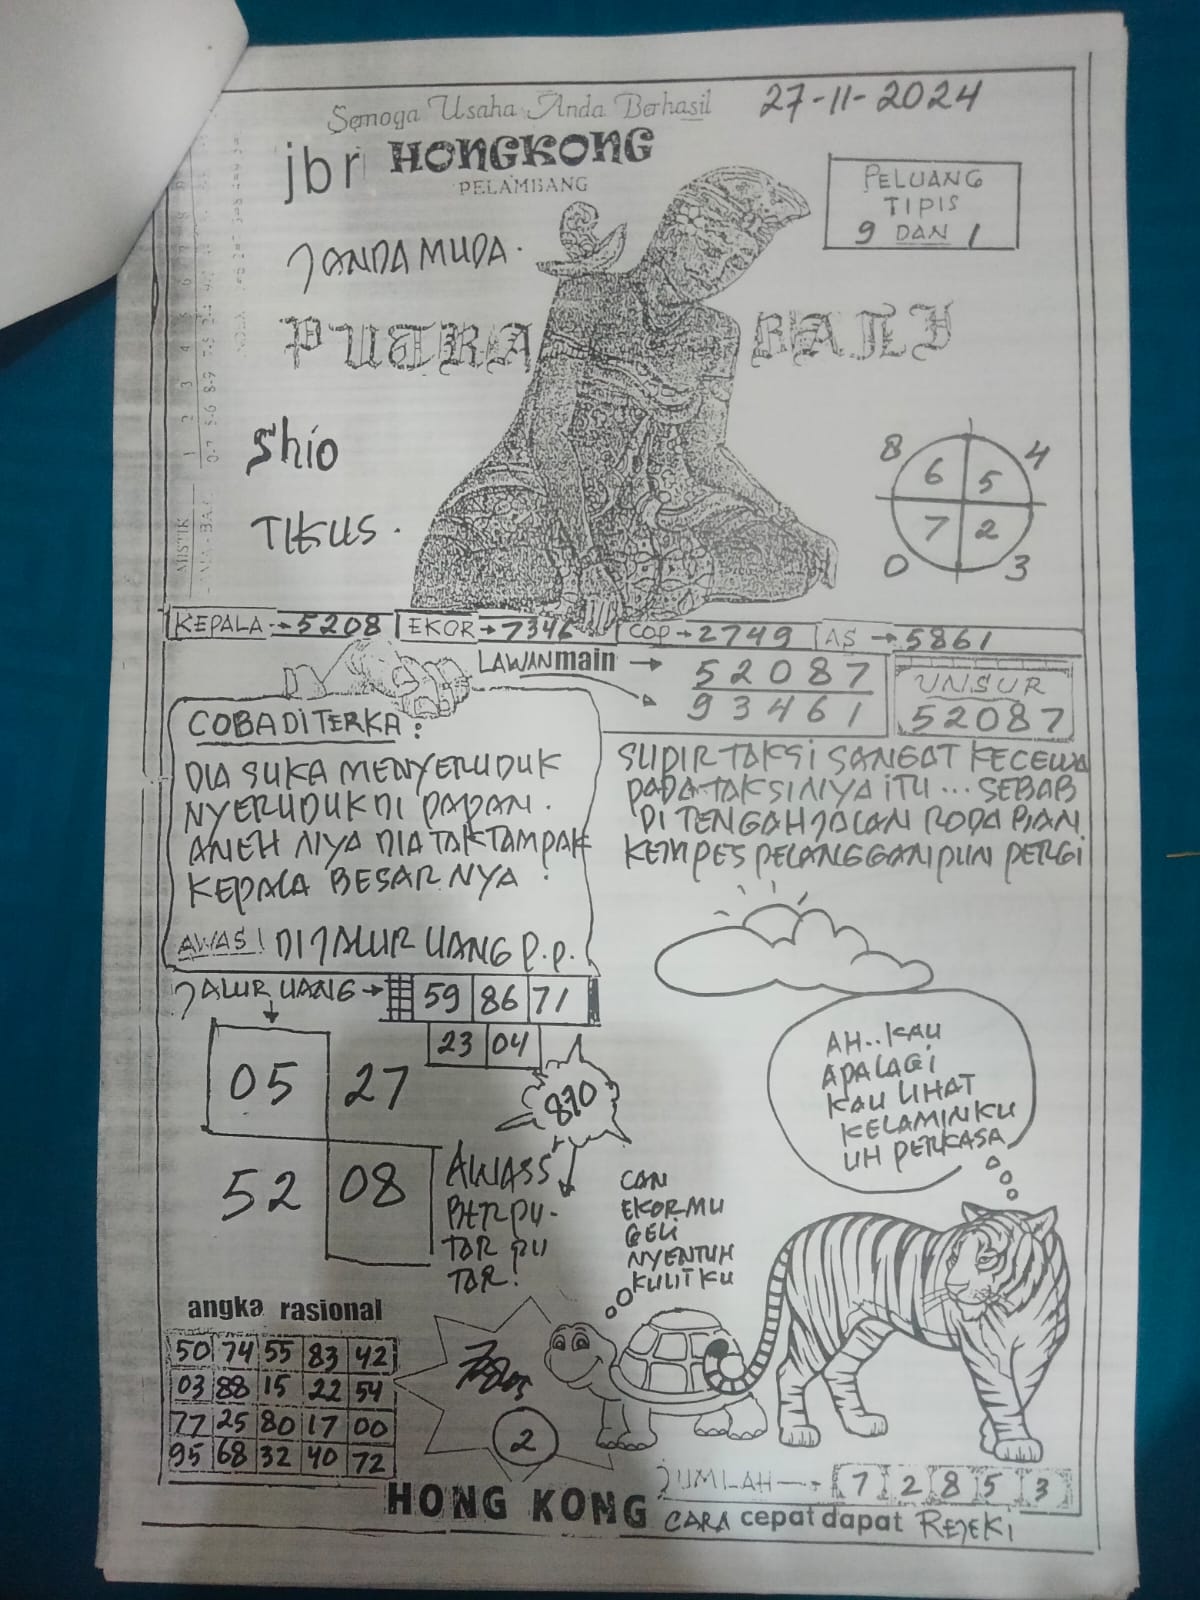 Semoga Usaha Anda Berhasil
27-11-2024
jbr HONGKONG
PELAMBANG
PELUANG
TIPIS
9 DAN 1
JANDA MUDA.
PUTRA BALI
Shio
TIKUS.
8 4
6 5
7 2
0 3
KEPALA → 5208 EKOR → 7346 COP → 2749 AS → 5861
LAWAN main → 52087
93461
UNSUR
52087
COBA DITERKA :
DIA SUKA MENYERUDUK
NYERUDUK DI PAPAN.
ANEH NIYA DIA TAK TAMPAK
KEPALA BESAR NYA !
AWAS! DI JALUR UANG P.P.
SUPIR TAKSI SANGAT KECEWA
PADA TAKSI NIYA ITU ... SEBAB
DI TENGAH JALAN RODA
KEMPES PELANGGAN PUN PERGI
JALUR UANG → 59 86 71
23 04
05 27
52 08
870
AWASS
BERPU-
TAR PU
TAR!
AH.. KAU
APALAGI
KAU LIHAT
KELAMINKU
UH PERKASA
EKORMU
GELI
NYENTUH
KULITKU
angka rasional
50 74 55 83 42
03 88 15 22 54
77 25 80 17 00
95 68 32 40 72
2
JUMLAH → 7 2 8 5 3
HONG KONG CARA cepat dapat REJEKI